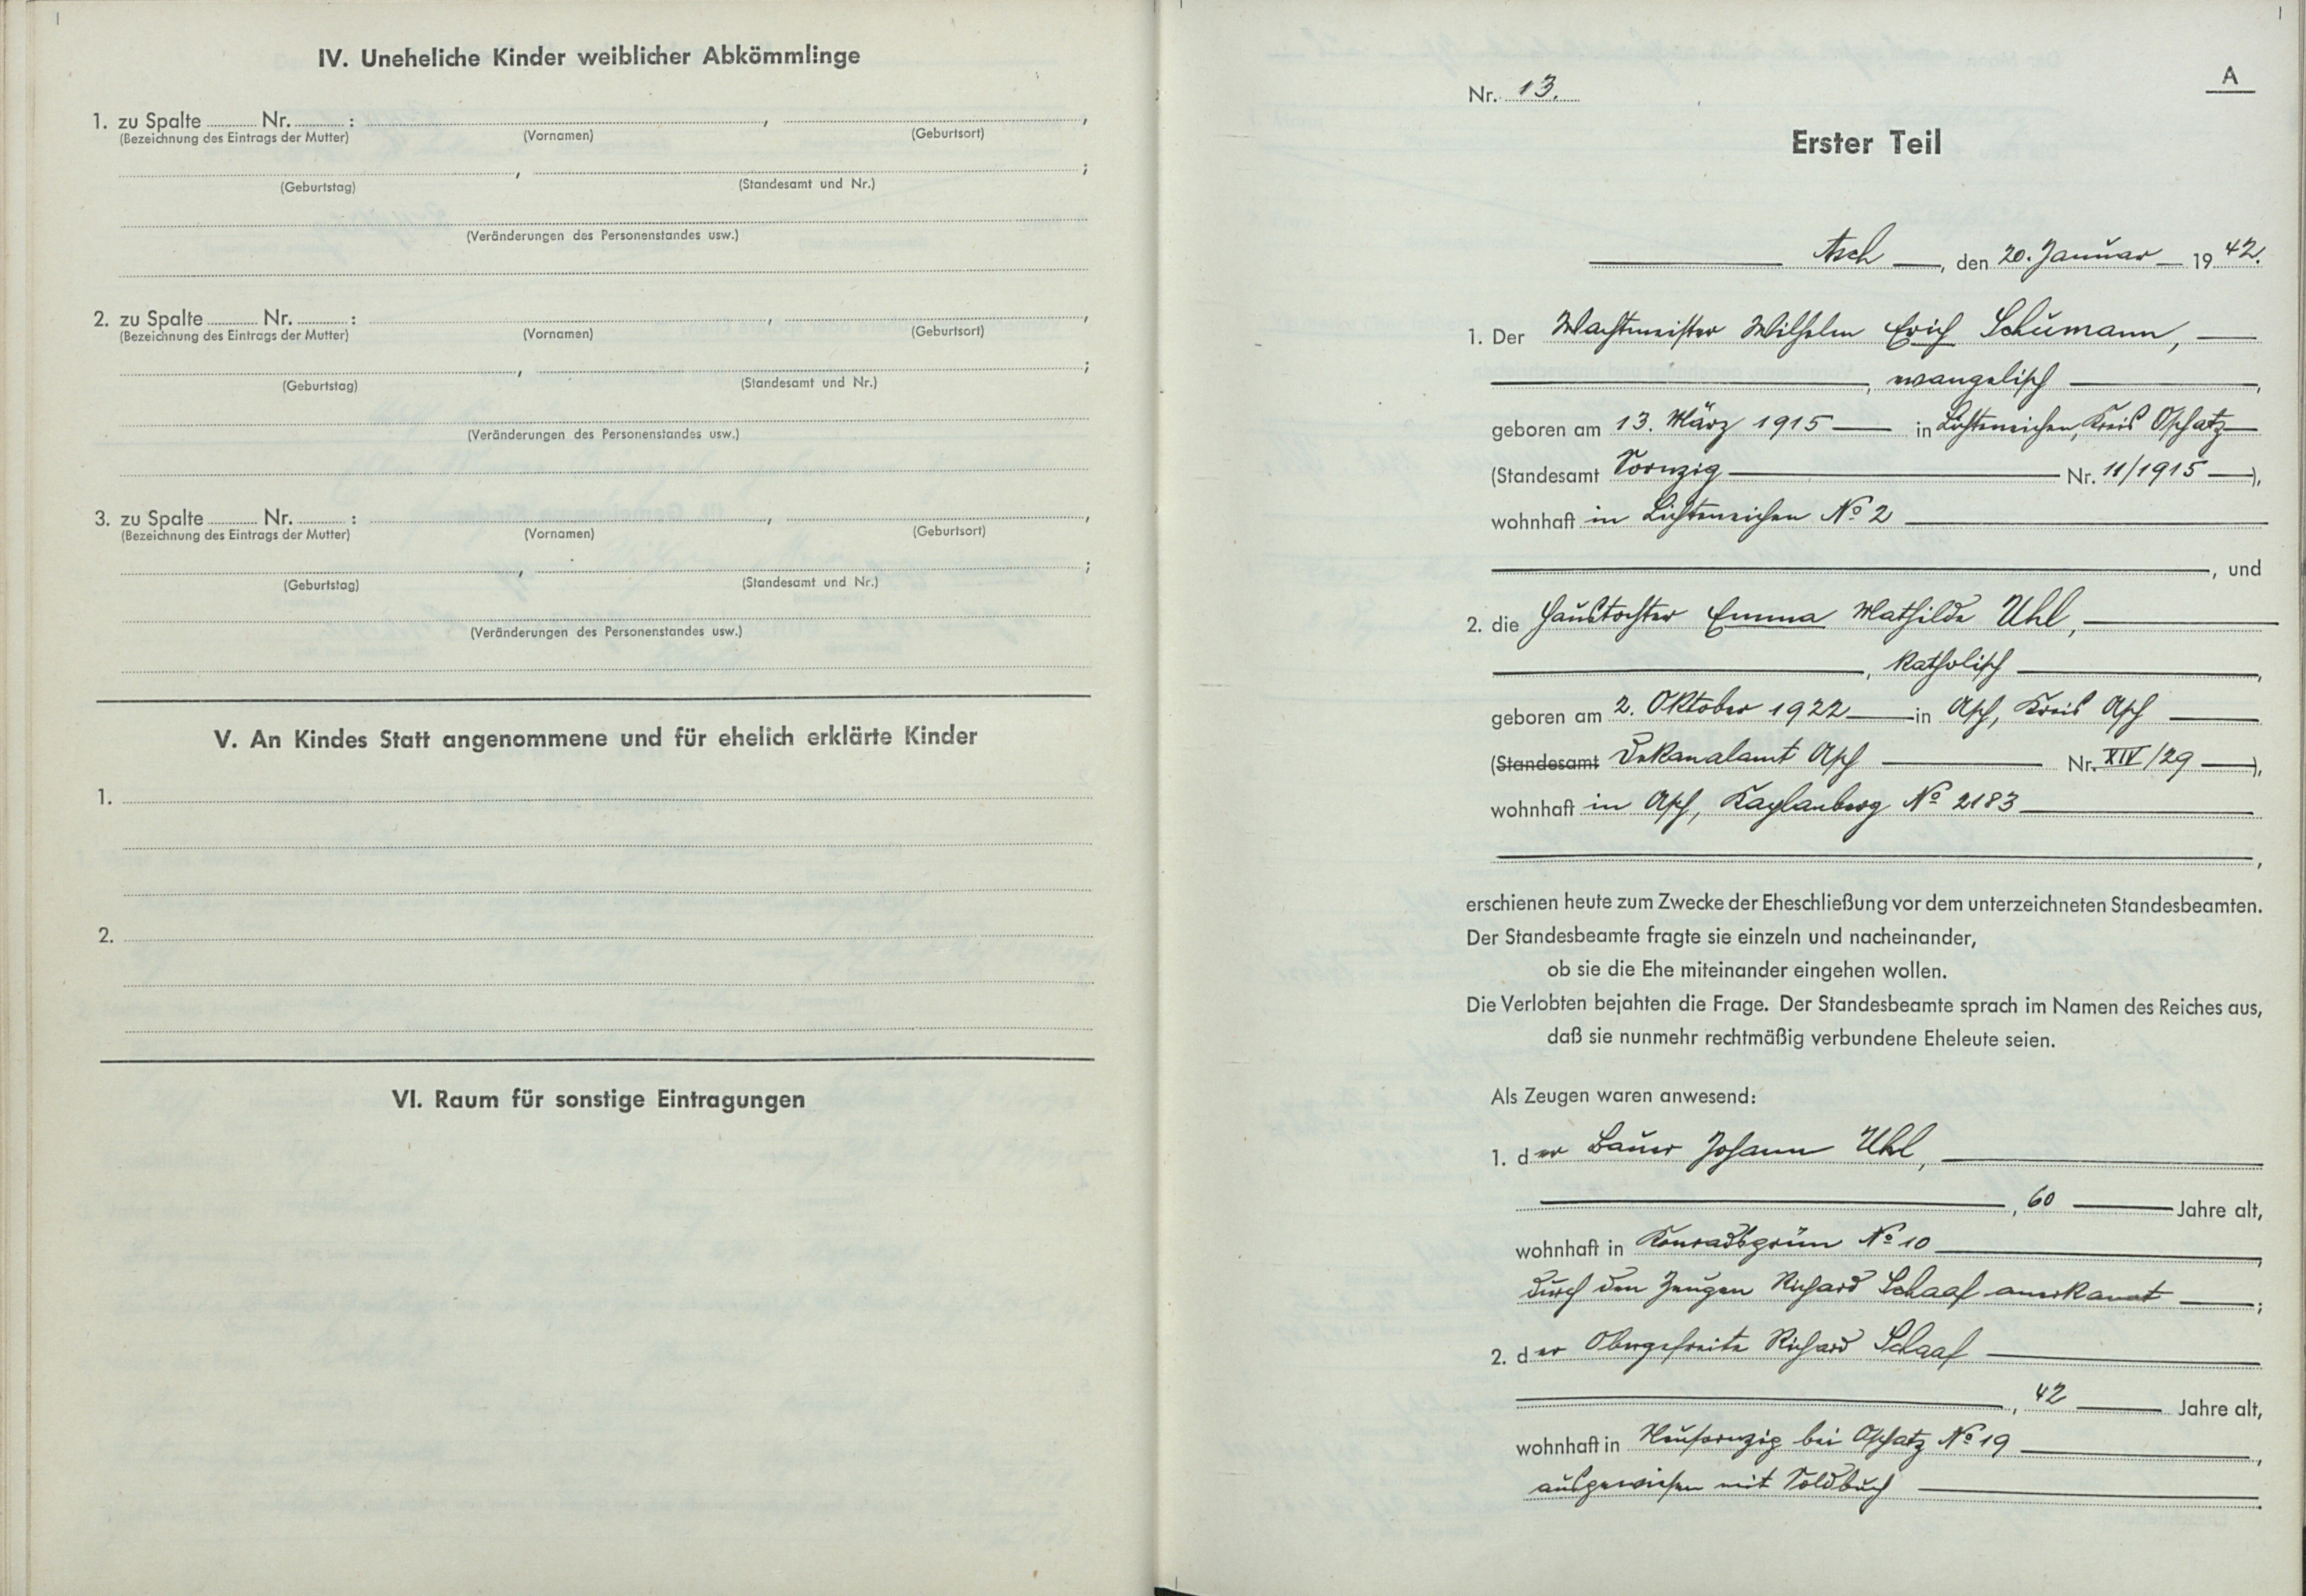 IV. Uneheliche Kinder weiblicher Abkömmlinge
1. zu Spalte ........ Nr. ........ : ........ , ........ ,
(Bezeichnung des Eintrags der Mutter) (Vornamen) (Geburtsort)
........ , ........ ;
(Geburtstag) (Standesamt und Nr.)
(Veränderungen des Personenstandes usw.)
2. zu Spalte ........ Nr. ........ : ........ , ........ ,
(Bezeichnung des Eintrags der Mutter) (Vornamen) (Geburtsort)
........ , ........ ;
(Geburtstag) (Standesamt und Nr.)
(Veränderungen des Personenstandes usw.)
3. zu Spalte ........ Nr. ........ : ........ , ........ ,
(Bezeichnung des Eintrags der Mutter) (Vornamen) (Geburtsort)
........ , ........ ;
(Geburtstag) (Standesamt und Nr.)
(Veränderungen des Personenstandes usw.)
V. An Kindes Statt angenommene und für ehelich erklärte Kinder
1.
2.
VI. Raum für sonstige Eintragungen
A
Nr. 13.
Erster Teil
Asch, den 20. Januar 1942.
1. Der Wachtmeister Wilhelm Erich Schumann,
, evangelisch ,
geboren am 13. März 1915 in Lichteneichen, Kreis Oschatz
(Standesamt Sornzig Nr. 11/1915 ),
wohnhaft in Lichteneichen No 2
, und
2. die Haustochter Emma Mathilde Uhl,
, katholisch ,
geboren am 2. Oktober 1922 in Asch, Kreis Asch
(Standesamt Dekanalamt Asch Nr. XIV/29 ),
wohnhaft in Asch, Kaplanberg No 2183
,
erschienen heute zum Zwecke der Eheschließung vor dem unterzeichneten Standesbeamten.
Der Standesbeamte fragte sie einzeln und nacheinander,
ob sie die Ehe miteinander eingehen wollen.
Die Verlobten bejahten die Frage. Der Standesbeamte sprach im Namen des Reiches aus,
daß sie nunmehr rechtmäßig verbundene Eheleute seien.
Als Zeugen waren anwesend:
1. der Bauer Johann Uhl,
, 60 Jahre alt,
wohnhaft in Konradsgrün No 10 ,
durch den Zeugen Richard Schaaf anerkannt ;
2. der Obergefreite Richard Schaaf
, 42 Jahre alt,
wohnhaft in Neusornzig bei Oschatz No 19 ,
ausgewiesen mit Soldbuch .